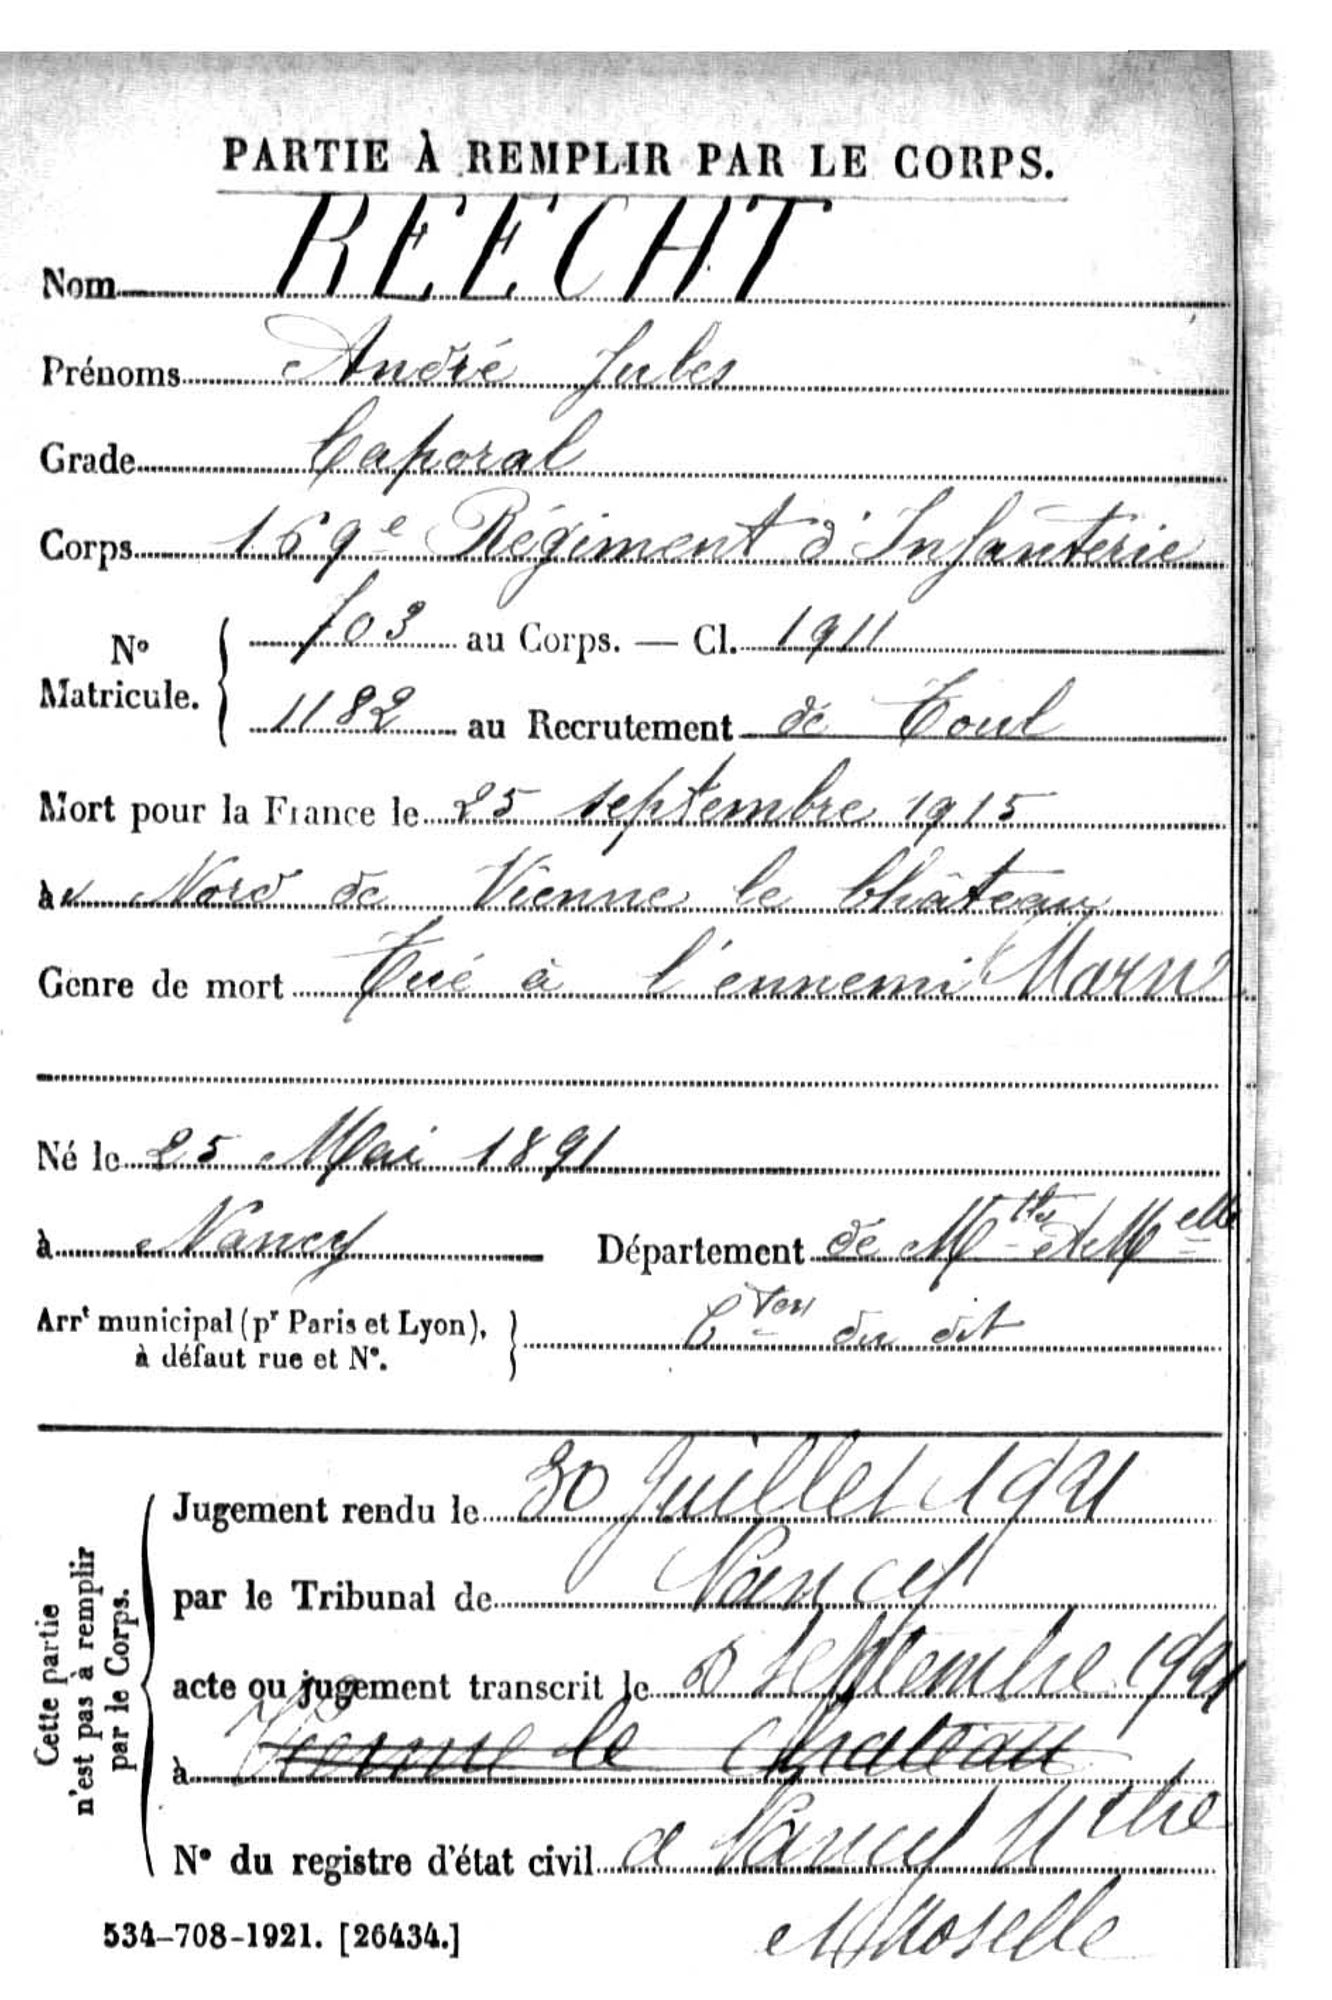 PARTIE À REMPLIR PAR LE CORPS.
Nom REECHT
Prénoms André Jules
Grade Caporal
Corps 169e Régiment d'Infanterie
No Matricule. { 703 au Corps. — Cl. 1911
1182 au Recrutement de Toul
Mort pour la France le 25 septembre 1915
au Nord de Vienne le Château
Genre de mort Tué à l'ennemi Marne
Né le 25 Mai 1891
à Nancy Département de Mthe et Melle
Arrt municipal (pr Paris et Lyon), à défaut rue et No. } du dit
Cette partie n'est pas à remplir par le Corps.
Jugement rendu le 30 Juillet 1921
par le Tribunal de Nancy
acte ou jugement transcrit le 5 Septembre 1921
à Vienne le Chateau
No du registre d'état civil a Nancy Mthe
Moselle
534-708-1921. [26434.]